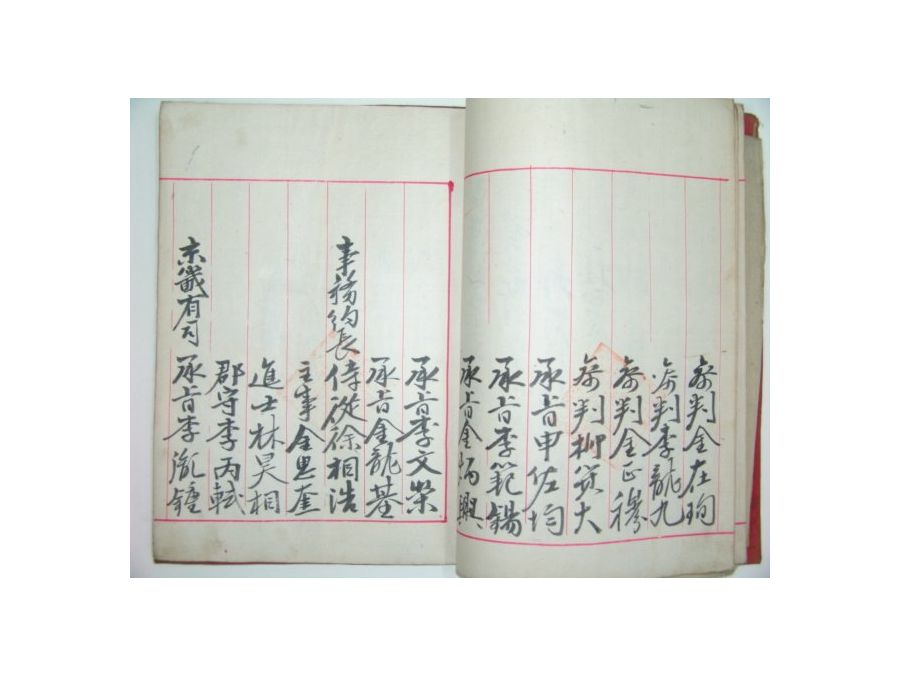 參判金在珣
參判李龍九
參判金正穆
參判柳冀大
承旨申佐均
承旨李範錫
承旨金炳興
承旨李文榮
承旨金龍基
事務約長 侍從徐相浩
主事金思奎
進士林昊相
郡守李丙軾
京畿有司 承旨李胤鍾